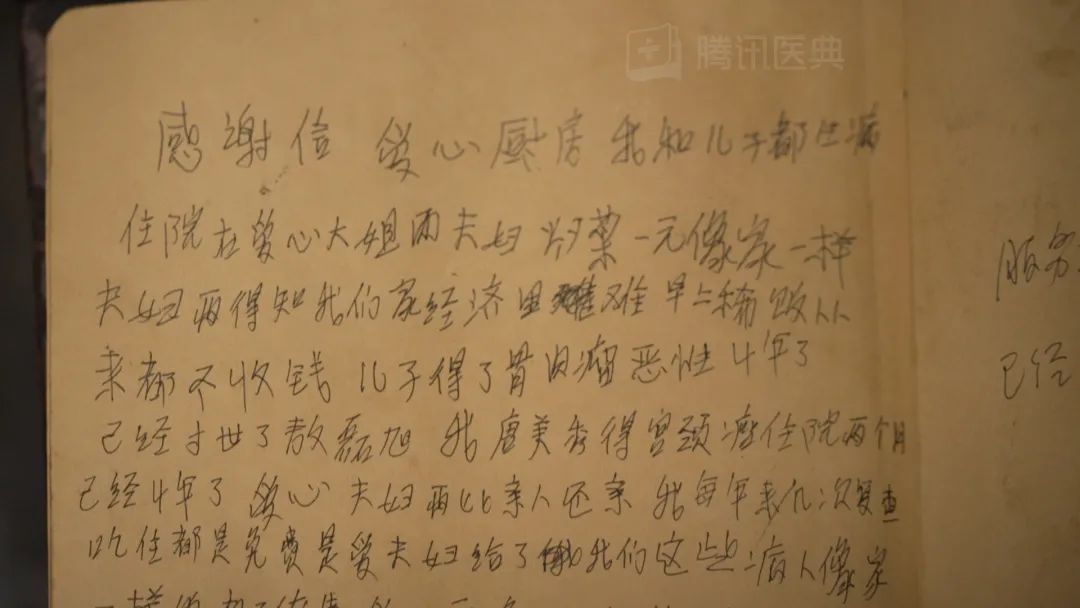 腾讯医典
感谢信 爱心厨房 我和儿子都生病
住院在爱心大姐两夫妇 炒菜一元像家一样
夫妇两得知我们家经济困难 早上稀饭从
来都不收钱 儿子得了骨肉瘤恶性4年了
已经去世了敖磊旭 我唐美秀得宫颈癌住院两个月
已经4年了 爱心夫妇两比亲人还亲 我每年来几次复查
吃住都是免费是爱夫妇给了我们这些病人像家
服务
已经